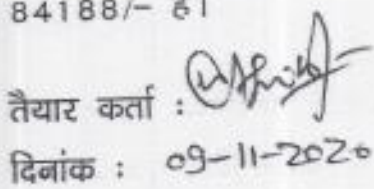 84188/- है।
तैयार कर्ता :
दिनांक : 09-11-2020